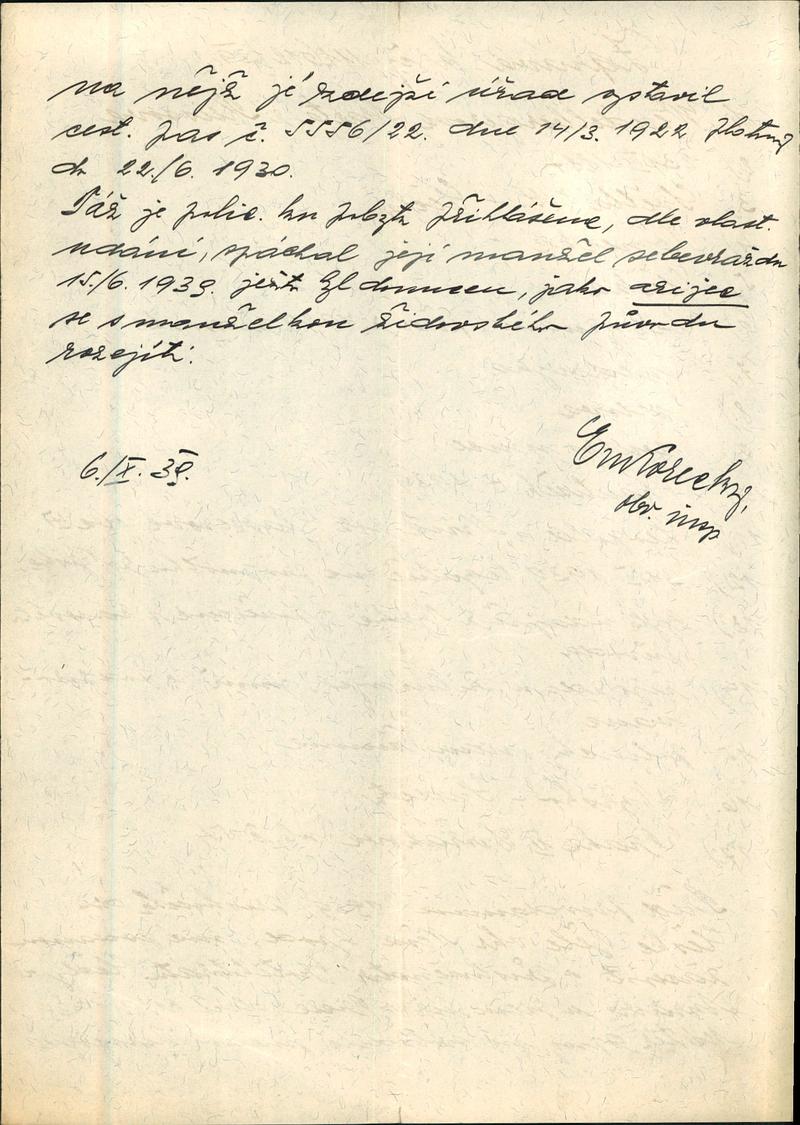 na nějž jí zdejší úřad vystavil
cest. pas č. 5556/22. dne 14/3. 1922 platný
do 22./6. 1930.
Táž je polic. ku pobytu přihlášena, dle vlast.
udání, spáchal její manžel sebevraždu
15./6. 1939. ješto byl donucen, jako arijec
se s manželkou židovského původu
rozejíti.
6./X. 39.
Em Kořecký,
obv. insp